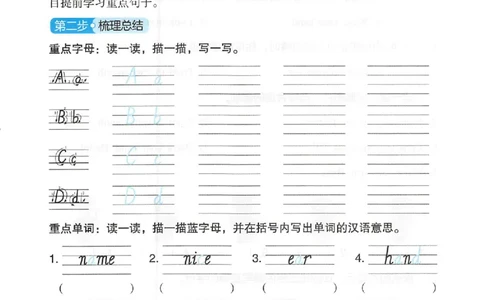 目提前学习重点句子。
第二步 梳理总结
重点字母：读一读，描一描，写一写。
A a A a
B b B b
C c C c
D d D d
重点单词：读一读，描一描蓝字母，并在括号内写出单词的汉语意思。
1. name 2. nice 3. ear 4. hand
( ) ( ) ( ) ( )